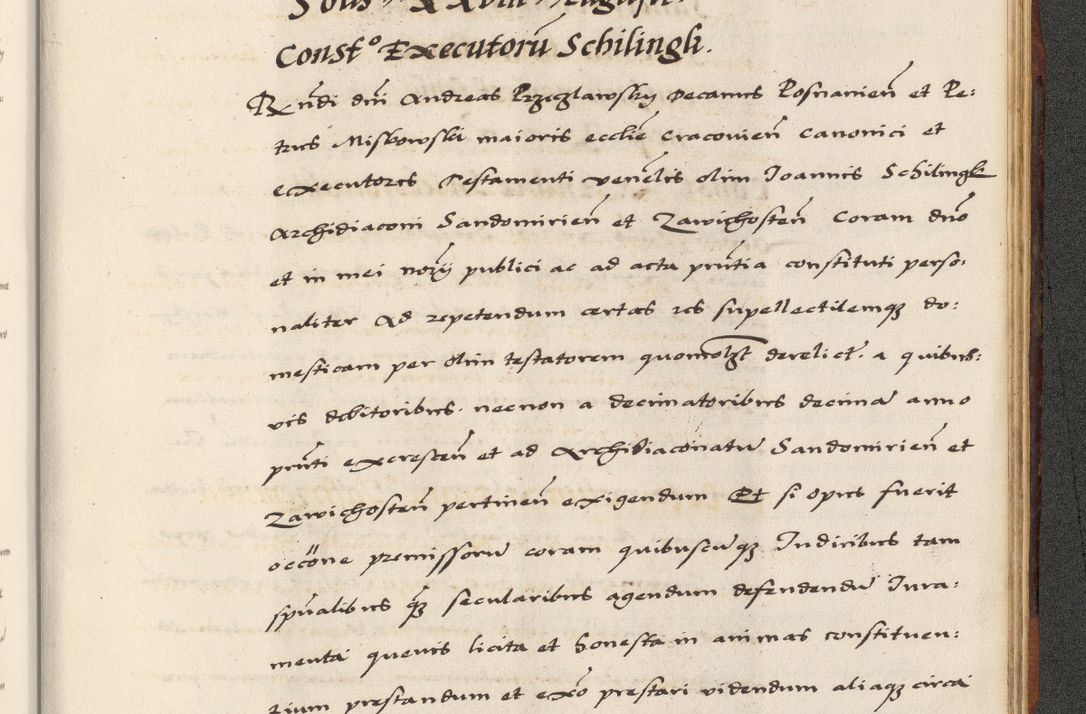 Constᵒ Executorū Schilingk.
Rn̄di dn̄i Andreas Przeczlawsky Decanus Posnanien̄ et Pe:
trus Miskowski maioris ecclīe Cracovien̄ Canonici et
executores Testamenti ven̄elis olim Joannis Schilingk
Archidiaconi Sandomirien̄ et Zawichosten̄ Coram dn̄o
et in mei norīj publici ac ad acta pn̄tia constituti perso:
naliter Ad repetendum certas res supellectilemqȝ do:
mesticam per Olim testatorem quomolȝt derelict. a quibus:
vis debitoribus. necnon a decimatoribus decima anno
pn̄ti excrescen̄ et ad Archidiaconatū Sandomirien̄ et
Zawichosten̄ pertinen̄ exigendum Et si opus fuerit
occōne premissorū coram quibuscūqȝ Iudicibus tam
spūalibus qȝ secularibus agendum defendendū Iura:
menta quevis licita et honesta in animas constituen:
tium prestandum et exᵒ prestari videndum aliaqȝ circa